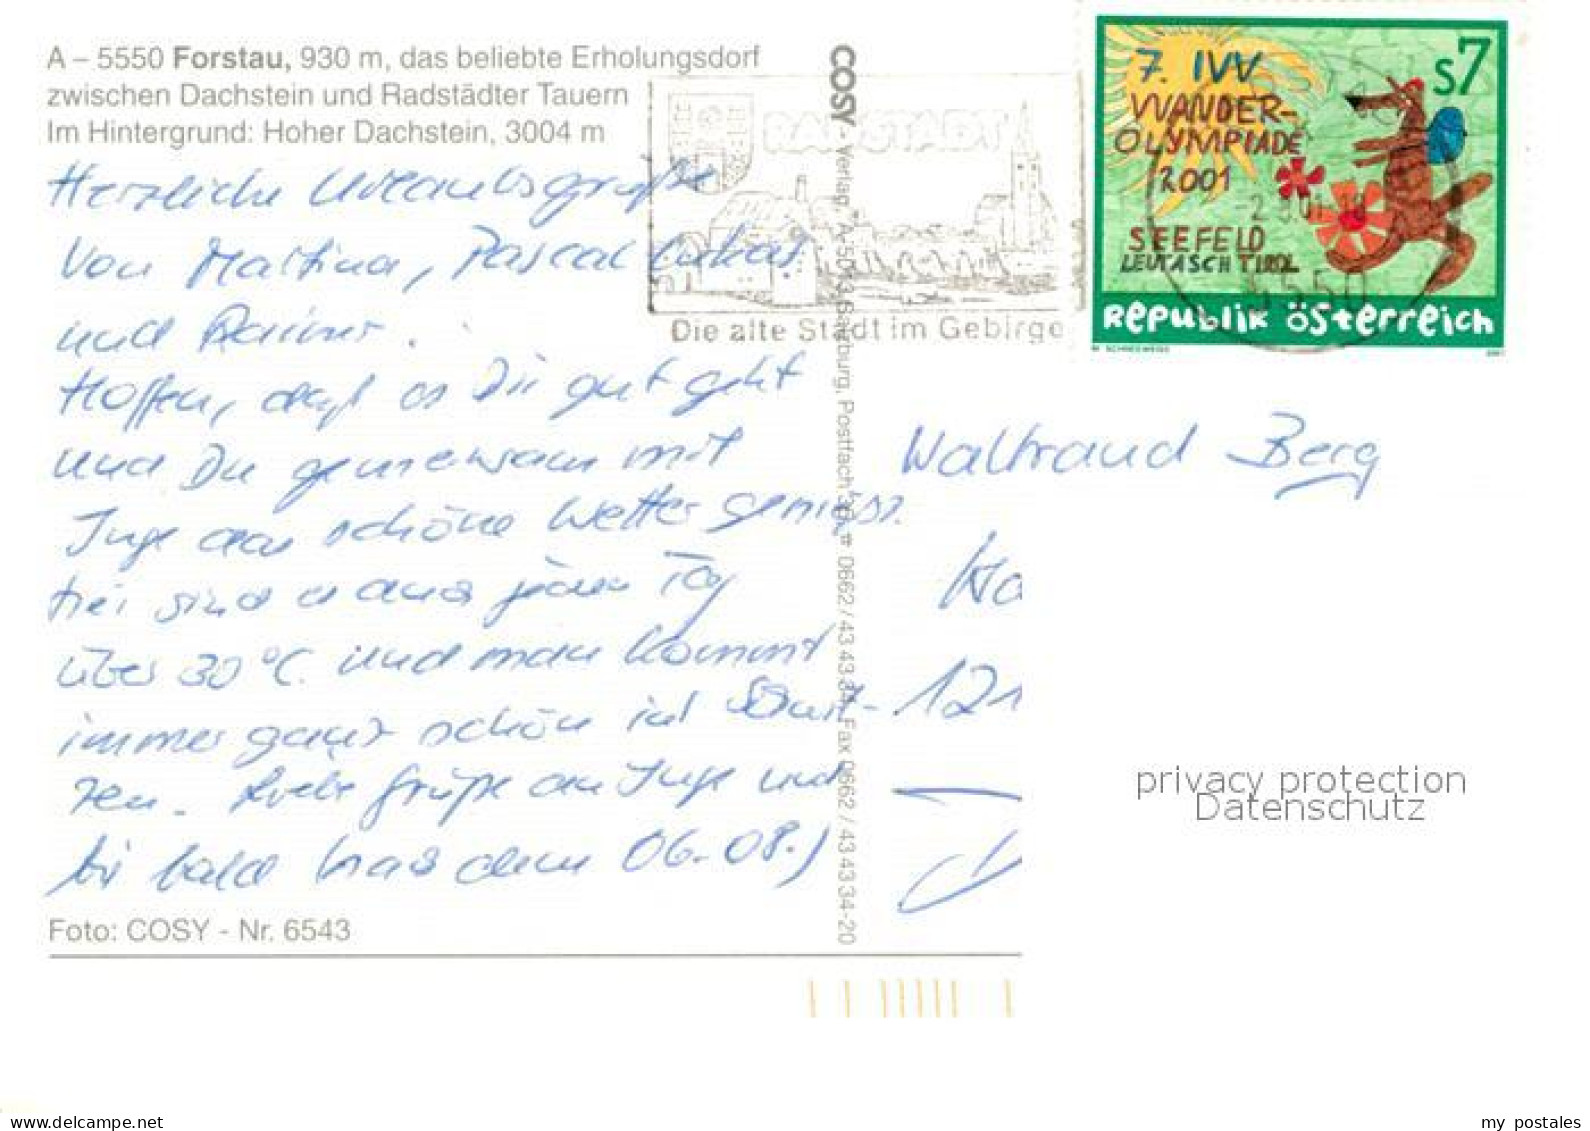 A – 5550 Forstau, 930 m, das beliebte Erholungsdorf
zwischen Dachstein und Radstädter Tauern
Im Hintergrund: Hoher Dachstein, 3004 m
Herzliche Urlaubsgrüße
von Martina, Pascal Lukas
und Rainer.
Hoffen, daß es Dir gut geht
und Du gemeinsam mit
Inge das schöne Wetter genießt.
hier sind es aus jeden Tag
über 30°C. und man kommt
immer ganz schön ins Schwit-
zen. Liebe Grüße an Inge und
bis bald dem 06.08.)
Foto: COSY - Nr. 6543
COSY - Verlag, A-5013 Salzburg, Postfach 30, 0662 / 43 43 34, Fax 0662 / 43 43 34-20
RADSTADT
Die alte Stadt im Gebirge
7. IVV
WANDER-
OLYMPIADE
2001
SEEFELD
LEUTASCH TIROL
S7
5550
REPUBLIK ÖSTERREICH
2001
Waltraud Berg
121
privacy protection
Datenschutz
my postales
www.delcampe.net